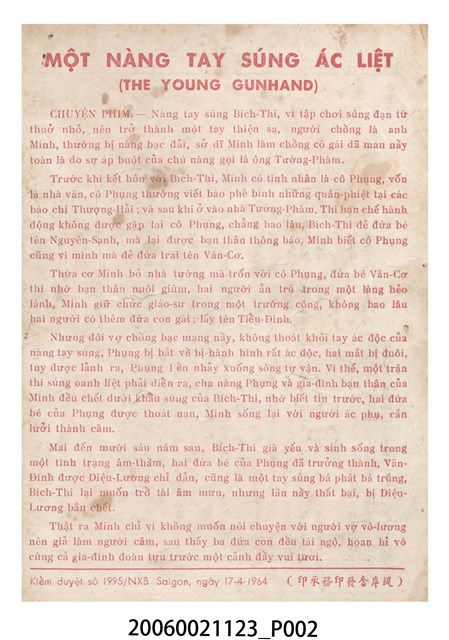 MỘT NÀNG TAY SÚNG ÁC LIỆT
(THE YOUNG GUNHAND)
CHUYỆN PHIM. — Nàng tay súng Bích-Thi, vì tập chơi súng đạn từ
thuở nhỏ, nên trở thành một tay thiện sạ, người chồng là anh
Minh, thường bị nàng bạc đãi, sở dĩ Minh làm chồng cô gái dã man nầy
toàn là do sự áp buột của chủ nàng gọi là ông Tướng-Phàm.
Trước khi kết hôn với Bích-Thi, Minh có tình nhân là cô Phụng, vốn
là nhà văn, cô Phụng thường viết báo phê bình những quân-phiệt tại các
báo chí Thượng-Hải ; và sau khi ở vào nhà Tướng-Phàm, Thi hạn chế hành
động không được gặp lại cô Phụng, chẳng bao lâu, Bích-Thi đẻ đứa bé
tên Nguyên-Sanh, mà lại được bạn thân thông báo, Minh biết cô Phụng
cũng vì mình mà đẻ đứa trai tên Văn-Cơ.
Thừa cơ Minh bỏ nhà tướng mà trốn với cô Phụng, đứa bé Văn-Cơ
thì nhờ bạn thân nuôi giùm, hai người ẩn trú trong một làng hẻo
lánh, Minh giữ chức giáo-sư trong một trường công, không bao lâu
hai người có thêm đứa con gái ; lấy tên Tiểu-Đình.
Nhưng đôi vợ chồng bạc mạng nầy, không thoát khỏi tay ác độc của
nàng tay súng, Phụng bị bắt về bị hành hình rất ác độc, hai mắt bị đuôi,
tuy được lãnh ra, Phụng lén nhảy xuống sông tự vận. Vì thế, một trận
thi súng oanh liệt phải diễn ra, cha nàng Phụng và gia-đình bạn thân của
Minh đều chết dưới khẩu súng của Bích-Thi, nhờ biết tin trước, hai đứa
bé của Phụng được thoát nạn, Minh sống lại với người ác phụ, cắn
lưỡi thành câm.
Mãi đến mười sáu năm sau, Bích-Thi già yếu và sinh sống trong
một tình trạng âm-thầm, hai đứa bé của Phụng đã trưởng thành, Văn-
Đình được Diệu-Lương chỉ dẫn, cũng là một tay súng bá phát bá trúng,
Bích-Thi lại muốn trổ tài âm mưu, nhưng lần nầy thất bại, bị Diệu-
Lương bắn chết.
Thật ra Minh chỉ vì không muốn nói chuyện với người vợ vô-lương
nên giả làm người câm, sau thấy ba đứa con đều tái ngộ, hoan hỉ vô
cùng cả gia-đình đoàn tựu trước một cảnh đầy vui tươi.
Kiểm duyệt số 1995/NXB Saigon, ngày 17-4-1964 (印承務印發會岸堤)
20060021123_P002